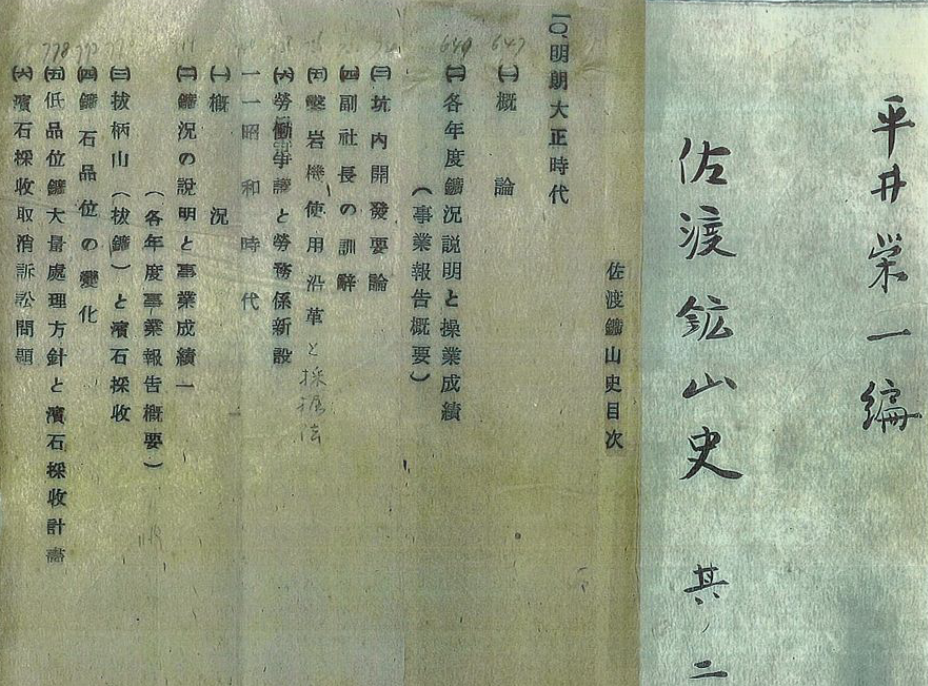 平井栄一編
佐渡鉱山史 其ノ二
佐渡鑛山史目次
一〇、明朗大正時代
647
㈠概論
649
㈡各年度鑛況説明と操業成績
(事業報告概要)
㈢坑内開發要論
㈣副社長の訓辭
㈤鑿岩機使用沿革と採掘法
㈥勞働爭議と勞務係新設
一一昭和時代
㈠概況
㈡鑛況の說明と事業成績一
(各年度事業報告概要)
㈢拔柄山(拔鑛)と濱石採收
㈣鑛石品位の變化
778
㈤低品位鑛大量處理方針と濱石採收計畵
㈥濱石採收取消訴訟問題